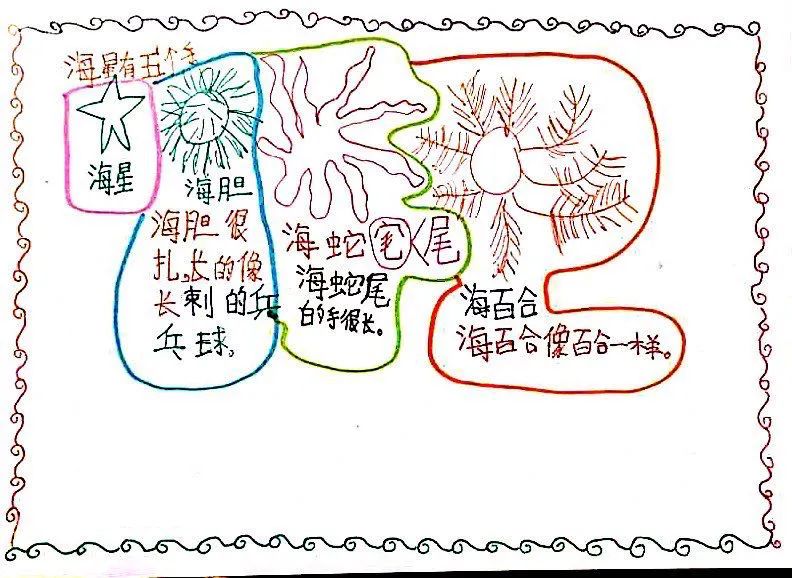 海星有五个手
海星
海胆
海胆很
扎,长的像
长刺的兵
兵球。
海蛇尾
海蛇尾
的手很长。
海百合
海百合像百合一样。